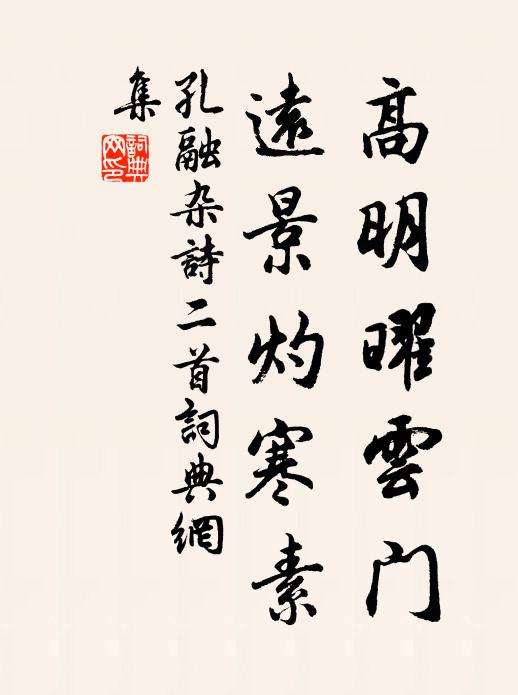 高明曜雲門
遠景灼寒素
孔融杂詩二首詞典網
集
詞典
网印